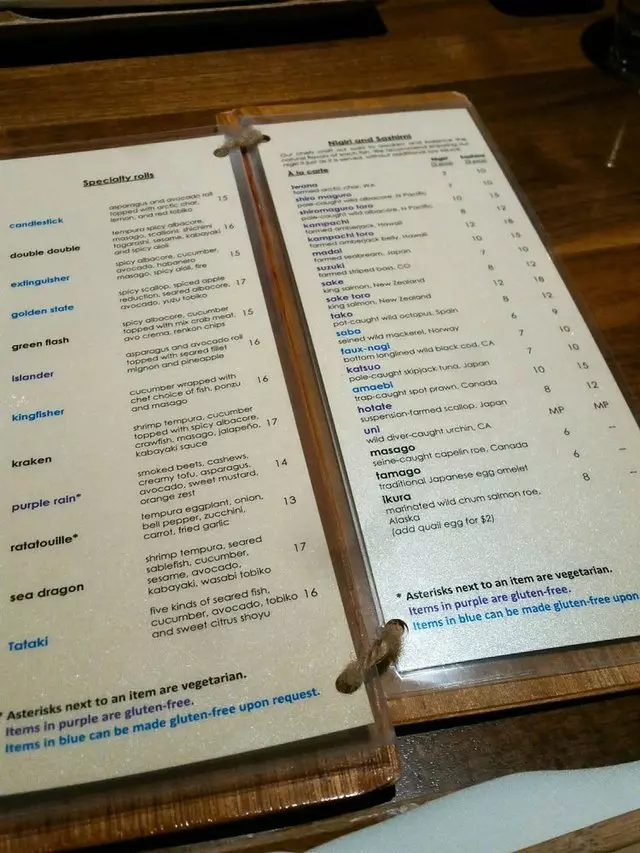 Specialty rolls
candlestick
asparagus and avocado roll
topped with arctic char,
lemon, and red tobiko
15
double double
tempura spicy albacore,
masago, scallions, shichimi
togarashi, sesame, kabayaki
and spicy aioli
16
extinguisher
spicy albacore, cucumber,
avocado, habanero
masago, spicy aioli, fire
15
golden state
spicy scallop, spiced apple
reduction, seared albacore,
avocado, yuzu tobiko
17
green flash
spicy albacore, cucumber
topped with mix crab meat,
avo crema, renkon chips
15
islander
asparagus and avocado roll
topped with seared fillet
mignon and pineapple
16
kingfisher
cucumber wrapped with
chef choice of fish, ponzu
and masago
16
kraken
shrimp tempura, cucumber
topped with spicy albacore,
crawfish, masago, jalapeño,
kabayaki sauce
17
purple rain*
smoked beets, cashews,
creamy tofu, asparagus,
avocado, sweet mustard,
orange zest
14
ratatouille*
tempura eggplant, onion,
bell pepper, zucchini,
carrot, fried garlic
13
sea dragon
shrimp tempura, seared
sablefish, cucumber,
sesame, avocado,
kabayaki, wasabi tobiko
17
Tataki
five kinds of seared fish,
cucumber, avocado, tobiko
and sweet citrus shoyu
16
* Asterisks next to an item are vegetarian.
Items in purple are gluten-free.
Items in blue can be made gluten-free upon request.
Nigiri and Sashimi
Our chefs craft our sushi to awaken and balance the
natural flavors of each fish. We recommend enjoying our
nigiri just as it is served, without additional soy sauce.
À la carte
Nigiri
Sashimi
iwana 7 10
farmed arctic char, WA
shiro maguro 7 10
pole-caught wild albacore, N Pacific
shiromaguro toro 10 15
pole-caught wild albacore, N Pacific
kampachi 8 12
farmed amberjack, Hawaii
kampachi toro 12 18
farmed amberjack belly, Hawaii
madai 10 15
farmed seabream, Japan
suzuki 7 10
farmed striped bass, CO
sake 8 12
king salmon, New Zealand
sake toro 12 18
king salmon, New Zealand
tako 8 12
pot-caught wild octopus, Spain
saba 6 9
seined wild mackerel, Norway
faux-nagi 7 10
bottom longlined wild black cod, CA
katsuo 7 10
pole-caught skipjack tuna, Japan
amaebi 10 15
trap-caught spot prawn, Canada
hotate 8 12
suspension-farmed scallop, Japan
uni MP MP
wild diver-caught urchin, CA
masago 6 --
seine-caught capelin roe, Canada
tamago 6 --
traditional Japanese egg omelet
ikura 8 --
marinated wild chum salmon roe,
Alaska
(add quail egg for $2)
* Asterisks next to an item are vegetarian.
Items in purple are gluten-free.
Items in blue can be made gluten-free upon